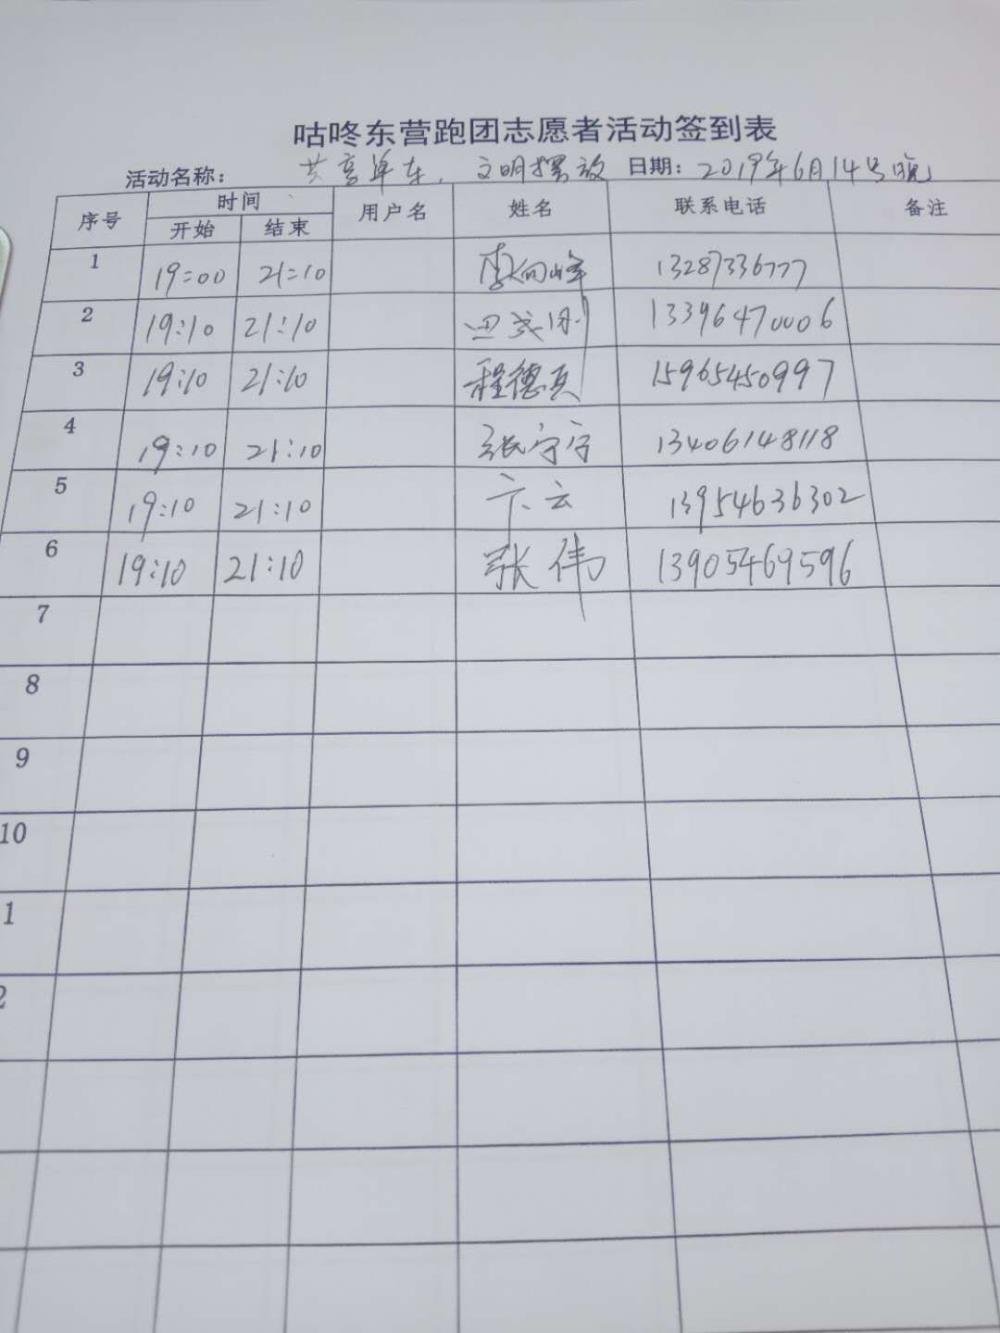 咕咚东营跑团志愿者活动签到表
活动名称: 共享单车, 文明摆放 日期: 2019年6月14号晚
序号 时间 用户名 姓名 联系电话 备注
开始 结束
1 19:00 21:10 李向峰 13287336777
2 19:10 21:10 13396470006
3 19:10 21:10 程德兵 15965450997
4 19:10 21:10 张宁宁 13406148118
5 19:10 21:10 卞云 13954636302
6 19:10 21:10 张伟 13905469596
7
8
9
10
1
2